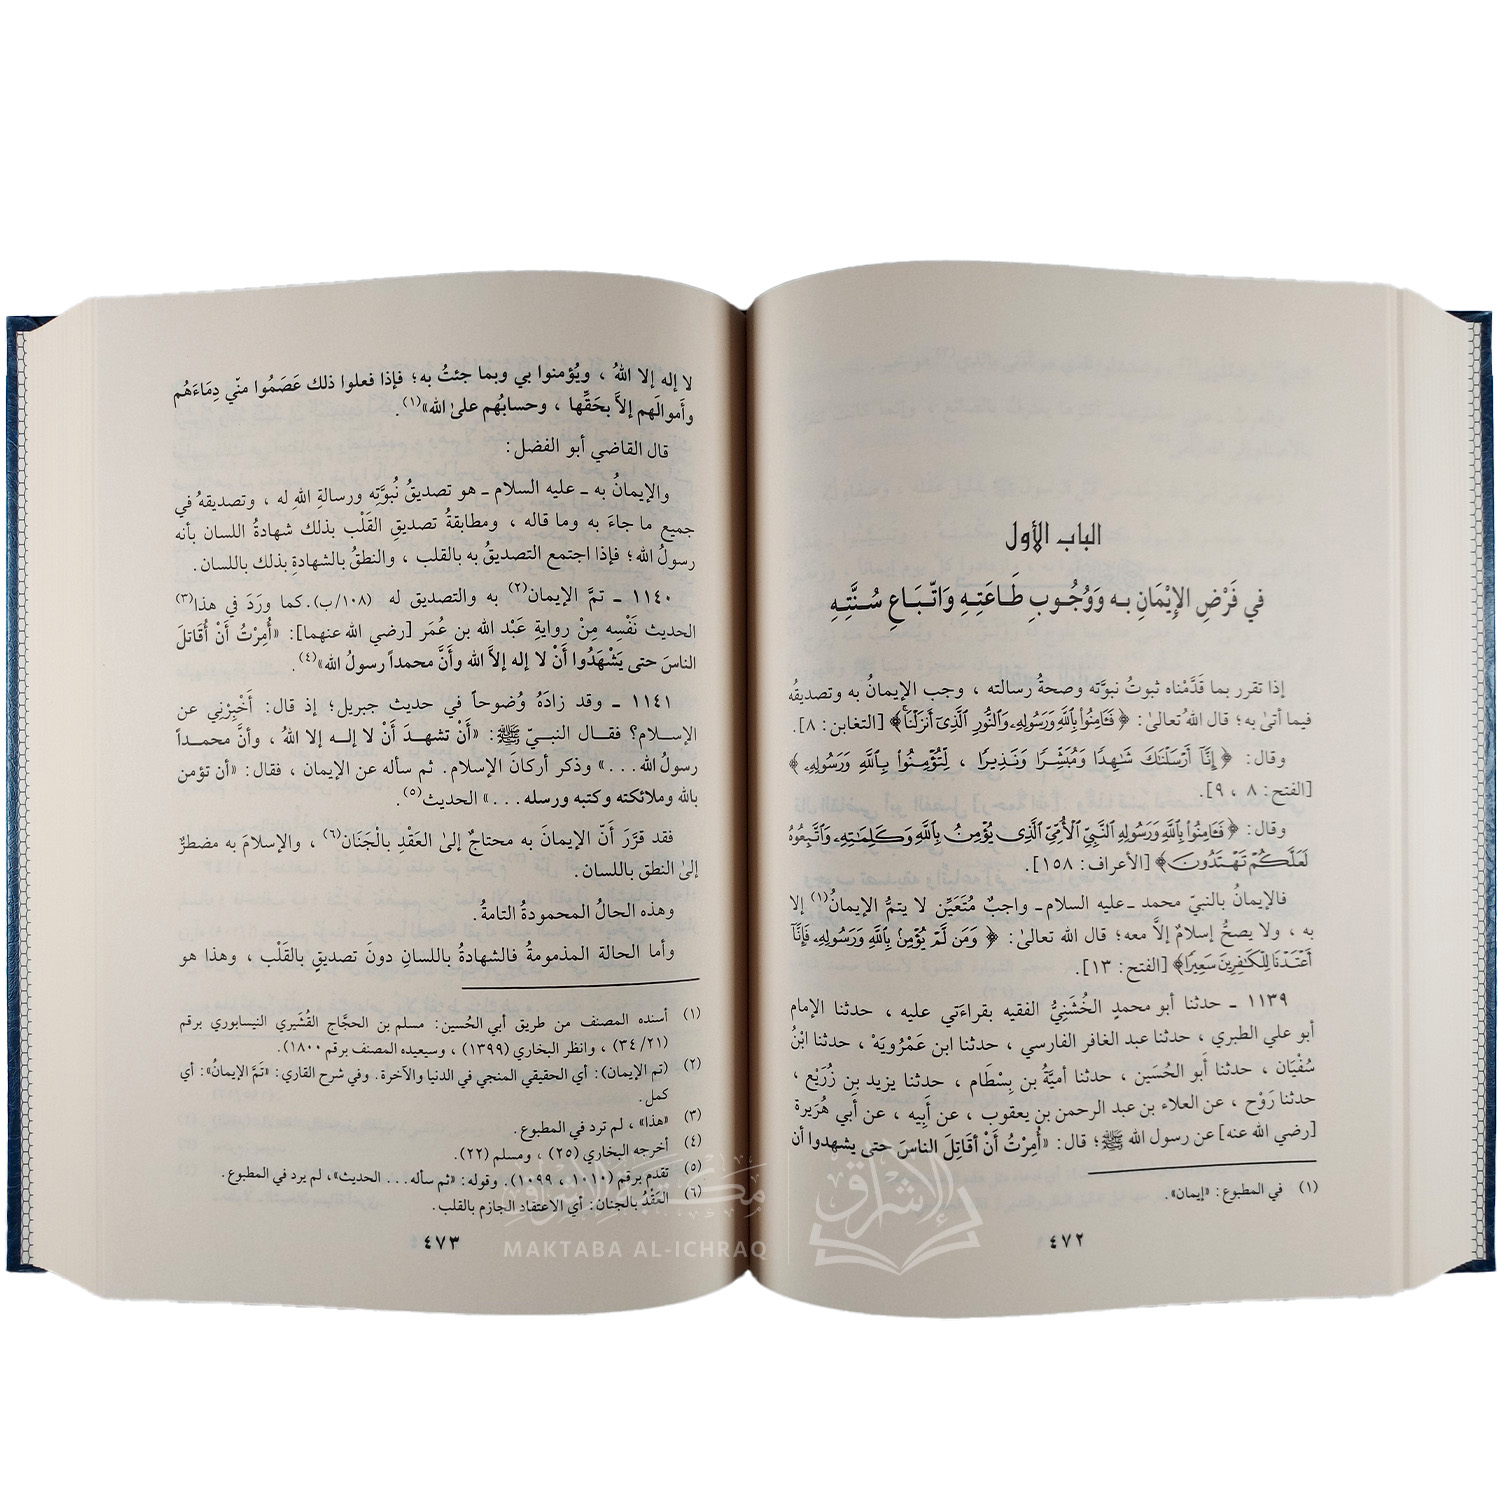 الباب الأول
في فَرْضِ الإِيْمَانِ بـه وَوُجُـوبِ طَـاعَتِـهِ وَاتّبَـاعِ سُـنَّتِـهِ
إذا تقرر بما قَدَّمْناه ثبوتُ نبوَّته وصحةُ رسالته ، وجب الإيمانُ به وتصديقُه
فيما أتىٰ به؛ قال اللهُ تعالىٰ: ﴿فَـَٔامِنُوا۟ بِٱللَّهِ وَرَسُولِهِۦ وَٱلنُّورِ ٱلَّذِىٓ أَنزَلْنَا﴾ [التغابن: ٨].
وقال: ﴿إِنَّآ أَرْسَلْنَـٰكَ شَـٰهِدًا وَمُبَشِّرًا وَنَذِيرًا ، لِتُؤْمِنُوا۟ بِٱللَّهِ وَرَسُولِهِۦ﴾
[الفتح: ٨ ، ٩].
وقال: ﴿فَـَٔامِنُوا۟ بِٱللَّهِ وَرَسُولِهِ ٱلنَّبِىِّ ٱلْأُمِّىِّ ٱلَّذِى يُؤْمِنُ بِٱللَّهِ وَكَلِمَـٰتِهِۦ وَٱتَّبِعُوهُ
لَعَلَّكُمْ تَهْتَدُونَ﴾ [الأعراف: ١٥٨].
فالإيمانُ بالنبيّ محمد ـ عليه السلام ـ واجبٌ مُتَعَيِّن لا يتمُّ الإيمانُ(١) إلا
به ، ولا يصحُّ إسلامٌ إلاَّ معه؛ قال الله تعالىٰ: ﴿وَمَن لَّمْ يُؤْمِنۢ بِٱللَّهِ وَرَسُولِهِۦ فَإِنَّآ
أَعْتَدْنَا لِلْكَـٰفِرِينَ سَعِيرًا﴾ [الفتح: ١٣].
١١٣٩ ـ حدثنا أبو محمدٍ الخُشَنِيُّ الفقيه بقراءَتي عليه ، حدثنا الإمام
أبو علي الطبري ، حدثنا عبد الغافر الفارسي ، حدثنا ابن عَمْرُويَهْ ، حدثنا ابْنُ
سُفْيَان ، حدثنا أبو الحُسَين ، حدثنا أميَّةُ بن بِسْطَام ، حدثنا يزيد بن زُرَيْع ،
حدثنا رَوْح ، عن العلاء بن عبد الرحمن بن يعقوب ، عن أَبِيه ، عن أبي هُرَيرة
[رضي الله عنه] عن رسول الله ﷺ؛ قال: «أُمِرْتُ أَنْ أُقَاتِلَ الناسَ حتى يشهدوا أن
(١) في المطبوع: «إيمان».
٤٧٢
لا إله إلا اللهُ ، ويُؤمنوا بي وبما جئتُ به؛ فإذا فعلوا ذلك عَصَمُوا منّي دِمَاءَهُم
وأموالَهم إلاَّ بحَقِّها ، وحسابُهم علىٰ الله»(١).
قال القاضي أبو الفضل:
والإيمانُ به ـ عليه السلام ـ هو تصديقُ نُبوَّتِه ورسالةِ اللهِ له ، وتصديقهُ في
جميع ما جاءَ به وما قاله ، ومطابقةُ تصديقِ القَلْب بذلك شهادةُ اللسان بأنه
رسولُ الله؛ فإذا اجتمع التصديقُ به بالقلب ، والنطقُ بالشهادةِ بذلك باللسان.
١١٤٠ ـ تمَّ الإيمان(٢) به والتصديق له (١٠٨/ب). كما ورَدَ في هذا(٣)
الحديث نَفْسِه مِنْ روايةِ عَبْد الله بن عُمَر [رضي الله عنهما]: «أُمِرْتُ أَنْ أُقَاتلَ
الناسَ حتى يَشْهَدُوا أَنْ لا إله إلاَّ الله وأَنَّ محمداً رسولُ الله»(٤).
١١٤١ ـ وقد زادَهُ وُضوحاً في حديث جبريل؛ إذ قال: أَخْبِرْنِي عن
الإسلام؟ فقال النبيّ ﷺ: «أَنْ تشهدَ أَنْ لا إله إلا اللهُ ، وأنَّ محمداً
رسولُ الله...» وذكر أركانَ الإسلام. ثم سأله عن الإيمان ، فقال: «أن تؤمن
بالله وملائكته وكتبه ورسله...» الحديث(٥).
فقد قرَّرَ أَنّ الإيمانَ به محتاجٌ إلىٰ العَقْدِ بالْجَنَان(٦) ، والإسلامَ به مضطرٌ
إلىٰ النطق باللسان.
وهذه الحالُ المحمودةُ التامةُ.
وأما الحالة المذمومةُ فالشهادةُ باللسانِ دونَ تصديقٍ بالقَلْب ، وهذا هو
(١) أسنده المصنف من طريق أبي الحُسين: مسلم بن الحجَّاج القُشَيري النيسابوري برقم
(٣٤/٢١) ، وانظر البخاري (١٣٩٩) ، وسيعيده المصنف برقم ١٨٠٠).
(٢) (تم الإيمان): أي الحقيقي المنجي في الدنيا والآخرة. وفي شرح القاري: «تَمَّ الإيمانُ»: أي
كمل.
(٣) «هذا» ، لم ترد في المطبوع.
(٤) أخرجه البخاري (٢٥) ، ومسلم (٢٢).
(٥) تقدم برقم (١٠١٠ ، ١٠٩٩). وقوله: «ثم سأله... الحديث»، لم يرد في المطبوع.
(٦) العَقْدُ بالجنان: أي الاعتقاد الجازم بالقلب.
٤٧٣
مكتبة الإشراق
MAKTABA AL-ICHRAQ
الإشراق